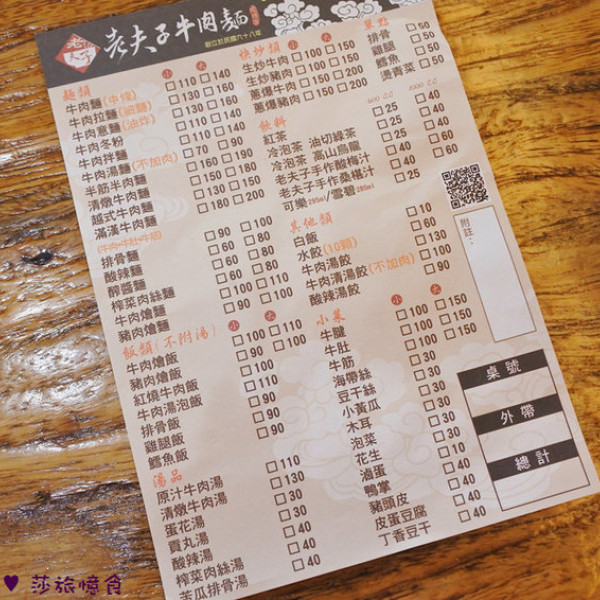 老夫子牛肉麵
創立於民國六十八年
麵類 小 大
牛肉麵(中條) □110 □140
牛肉拉麵(細麵) □130 □160
牛肉意麵(油炸) □130 □160
牛肉冬粉 □110 □140
牛肉拌麵 □110 □140
牛肉湯麵(不加肉) □70 □90
半筋半肉麵 □160 □190
清燉牛肉麵 □120 □150
越式牛肉麵 □130 □150
滿漢牛肉麵 □180 □200
(牛肉+牛肚+牛筋)
排骨麵 □90 □100
酸辣麵 □60 □80
醡醬麵 □60 □80
榨菜肉絲麵 □60 □80
牛肉燴麵 □100
豬肉燴麵 □90
飯類(不附湯) 小 大
牛肉燴飯 □100 □110
豬肉燴飯 □90 □100
紅燒牛肉飯 □100
牛肉湯泡飯 □110
排骨飯 □90
雞腿飯 □90
鱈魚飯 □90
湯品
原汁牛肉湯 □110
清燉牛肉湯 □130
蛋花湯 □30
貢丸湯 □30
酸辣湯 □40
榨菜肉絲湯 □40
苦瓜排骨湯 □40
快炒類 小 大
生炒牛肉 □100 □150
生炒豬肉 □100 □150
蔥爆牛肉 □150 □200
蔥爆豬肉 □150 □200
飲料
紅茶 □25 □40
冷泡茶 油切綠茶 □25 □40
冷泡茶 高山烏龍 □25 □40
老夫子手作酸梅汁 □40
老夫子手作桑椹汁 □40
可樂295ml/雪碧295ml □25
其他類
白飯 □10
水餃(10顆) □60
牛肉湯餃 □130
牛肉清湯餃(不加肉) □100
酸辣湯餃 □90
小菜 小 大
牛腱 □100 □150
牛肚 □100 □150
牛筋 □100 □150
海帶絲 □30
豆干絲 □30
小黃瓜 □40
木耳 □40
泡菜 □40
花生 □30
滷蛋
鴨掌
豬頭皮 □40
皮蛋豆腐 □40
丁香豆干 □40
單點
排骨 □50
雞腿 □50
鱈魚 □50
燙青菜 □50
附註：
桌號
外帶
總計
♥ 莎旅憶食